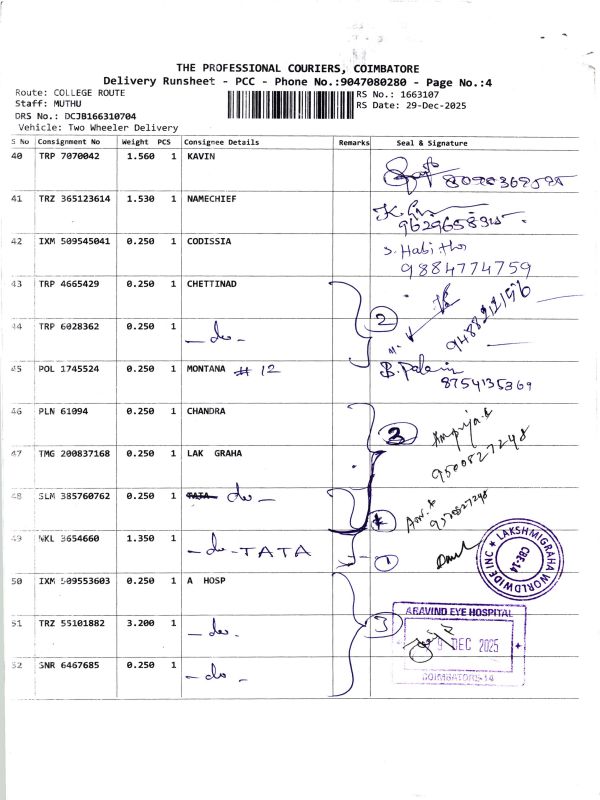 THE PROFESSIONAL COURIERS, COIMBATORE
Delivery Runsheet - PCC - Phone No.:9047080280 - Page No.:4
Route: COLLEGE ROUTE RS No.: 1663107
Staff: MUTHU RS Date: 29-Dec-2025
DRS No.: DCJB166310704
Vehicle: Two Wheeler Delivery
S No Consignment No Weight PCS Consignee Details Remarks Seal & Signature
40 TRP 7070042 1.560 1 KAVIN
41 TRZ 365123614 1.530 1 NAMECHIEF
42 IXM 509545041 0.250 1 CODISSIA S. Habitha
9884774759
43 TRP 4665429 0.250 1 CHETTINAD 2
44 TRP 6028362 0.250 1 - do - 9488212196
45 POL 1745524 0.250 1 MONTANA # 12
8754135369
46 PLN 61094 0.250 1 CHANDRA 3
47 TMG 200837168 0.250 1 LAK GRAHA 9500827248
48 SLM 385760762 0.250 1 TATA do -
49 NKL 3654660 1.350 1 - do - TATA 1
LAKSHMIGRAHA WORLDWIDE INC ★ CBE-14
50 IXM 509553603 0.250 1 A HOSP
ARAVIND EYE HOSPITAL
51 TRZ 55101882 3.200 1 - do - 3
9 DEC 2025
52 SNR 6467685 0.250 1 - do -
COIMBATORE-14